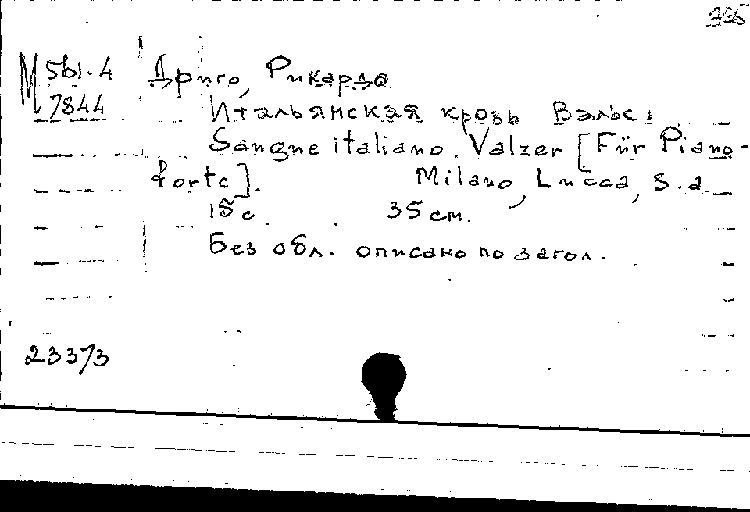 326
М 561.4 Дриго, Рикардо
7844 Итальянская кровь Вальс.
Sangue italiano. Valzer [Für Piano-
forte]. Milano, Lucca, s.a.
15 с. 35 см.
Без обл. описано по загол.
23373